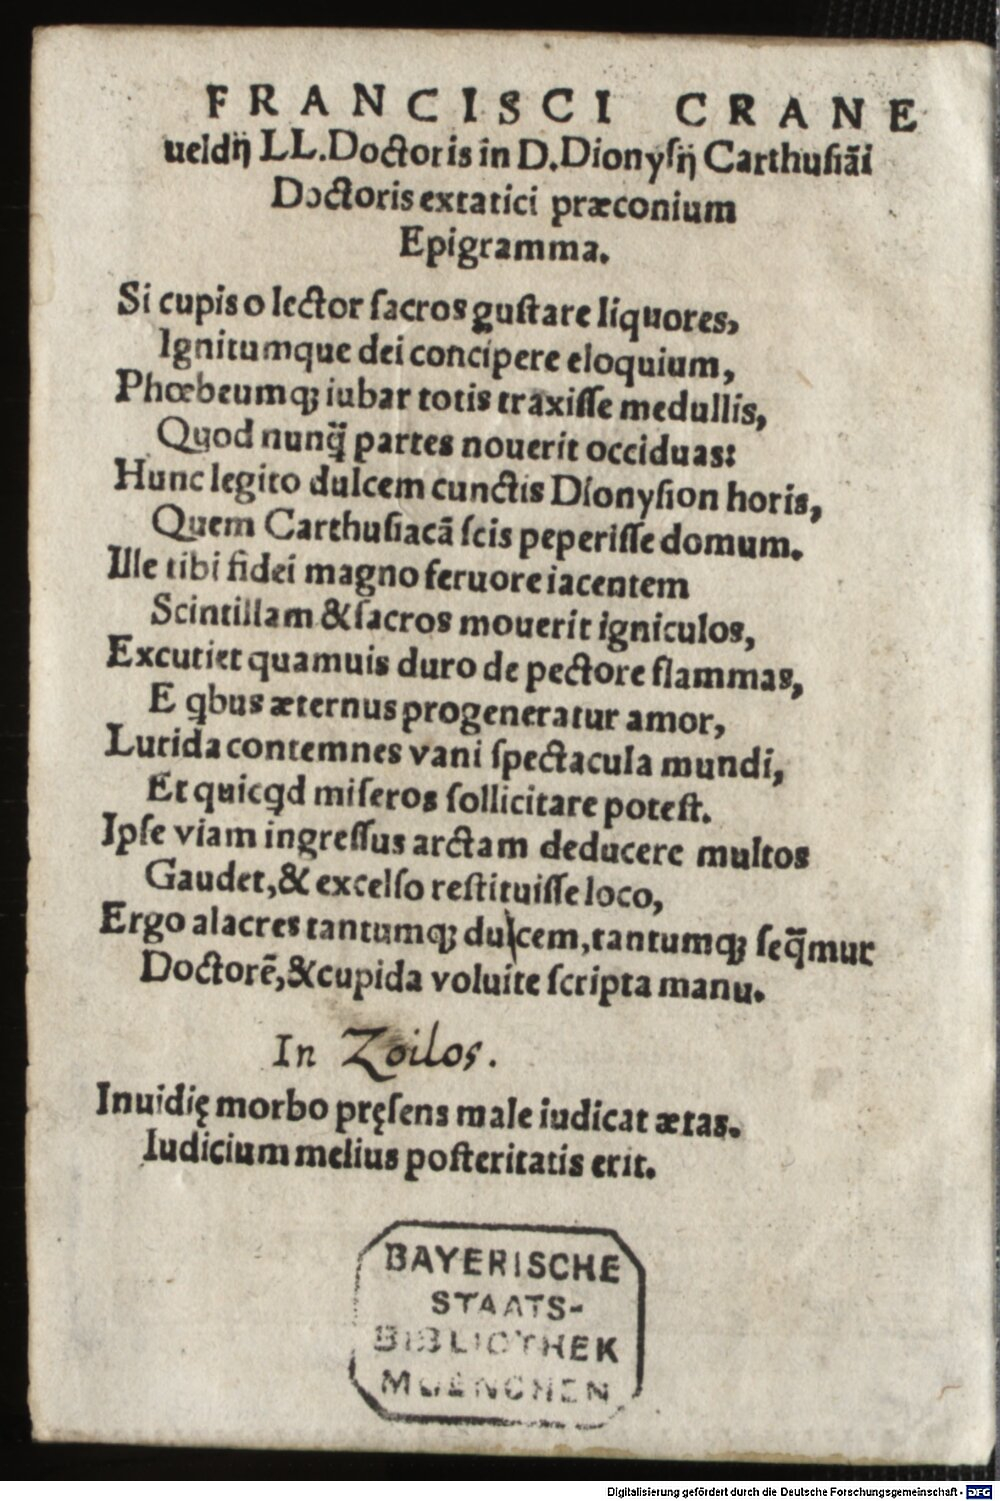 FRANCISCI CRANE
ueldij LL.Doctoris in D.Dionysij Carthusiāi
Doctoris extatici præconium
Epigramma.
Si cupis o lector sacros gustare liquores,
Ignitumque dei concipere eloquium,
Phœbeumq; iubar totis traxisse medullis,
Quod nunq̄ partes nouerit occiduas:
Hunc legito dulcem cunctis Dionysion horis,
Quem Carthusiacā scis peperisse domum.
Ille tibi fidei magno feruore iacentem
Scintillam & sacros mouerit igniculos,
Excutiet quamuis duro de pectore flammas,
E qbus æternus progeneratur amor,
Lurida contemnes vani spectacula mundi,
Et quicqd miseros sollicitare potest.
Ipse viam ingressus arctam deducere multos
Gaudet, & excelso restituisse loco,
Ergo alacres tantumq; dulcem, tantumq; seq̄mur
Doctorē, & cupida voluite scripta manu.
In Zoilos.
Inuidię morbo pręsens male iudicat ætas.
Iudicium melius posteritatis erit.
BAYERISCHE
STAATS-
BIBLIOTHEK
MUENCHEN
Digitalisierung gefördert durch die Deutsche Forschungsgemeinschaft - DFG